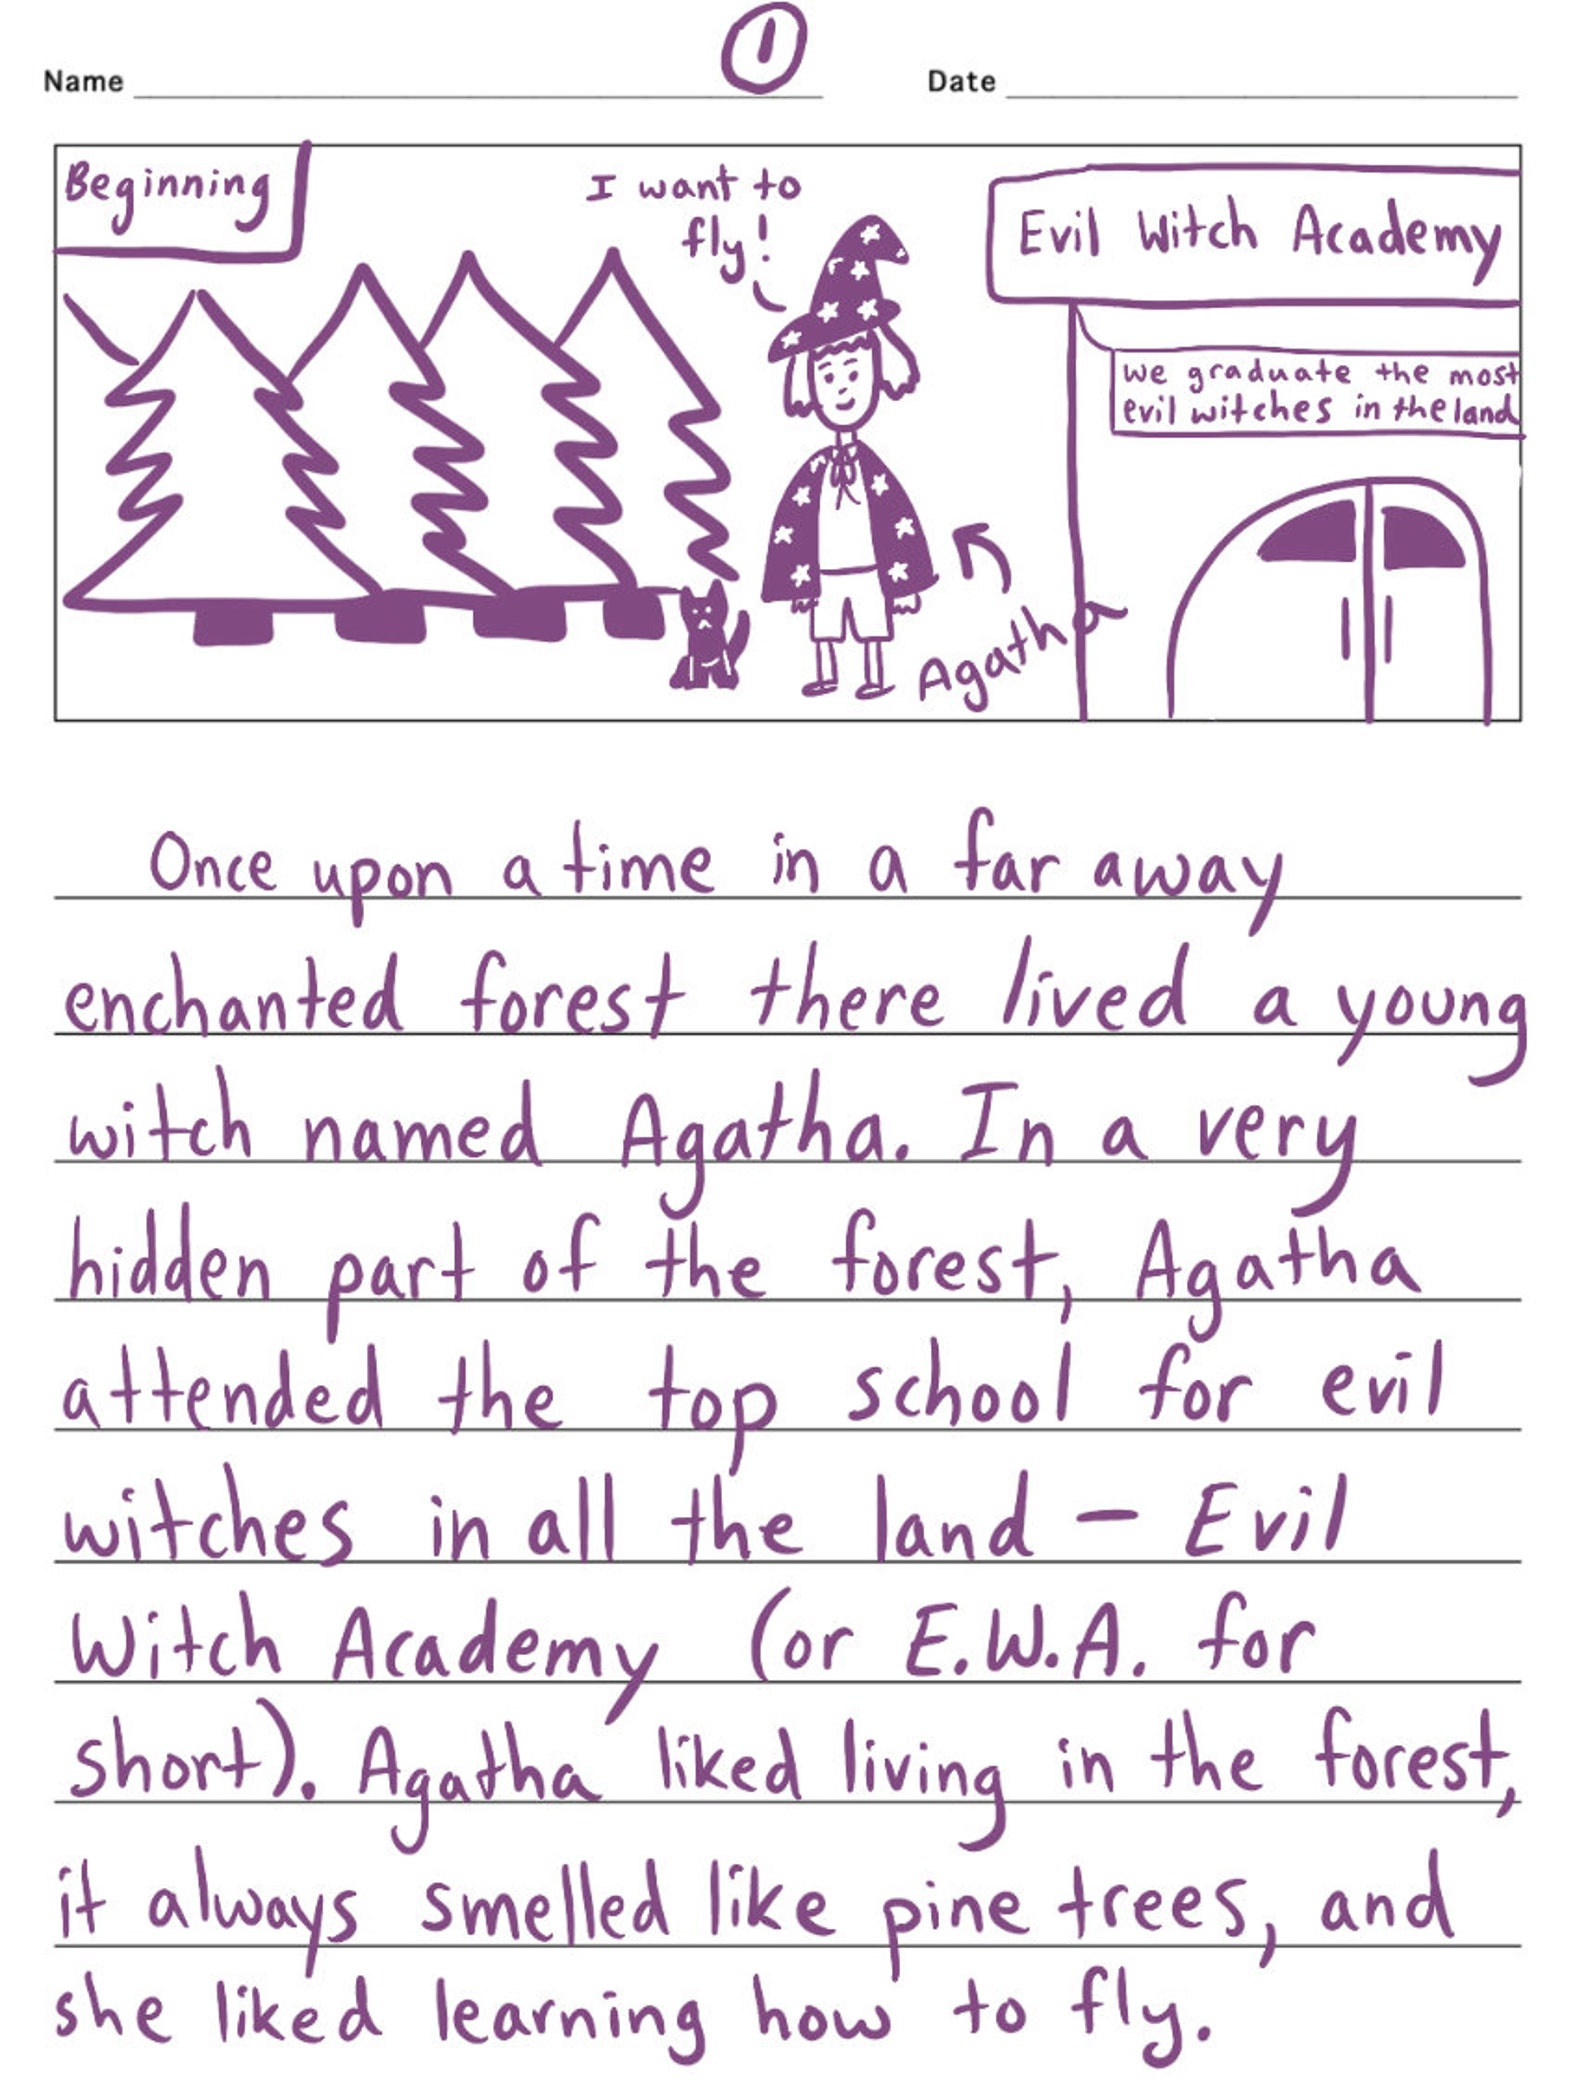 1
Name
Date
Beginning
I want to
fly!
Evil Witch Academy
we graduate the most
evil witches in the land
Agatha
Once upon a time in a far away
enchanted forest there lived a young
witch named Agatha. In a very
hidden part of the forest, Agatha
attended the top school for evil
witches in all the land – Evil
Witch Academy (or E.W.A. for
short). Agatha liked living in the forest,
it always smelled like pine trees, and
she liked learning how to fly.